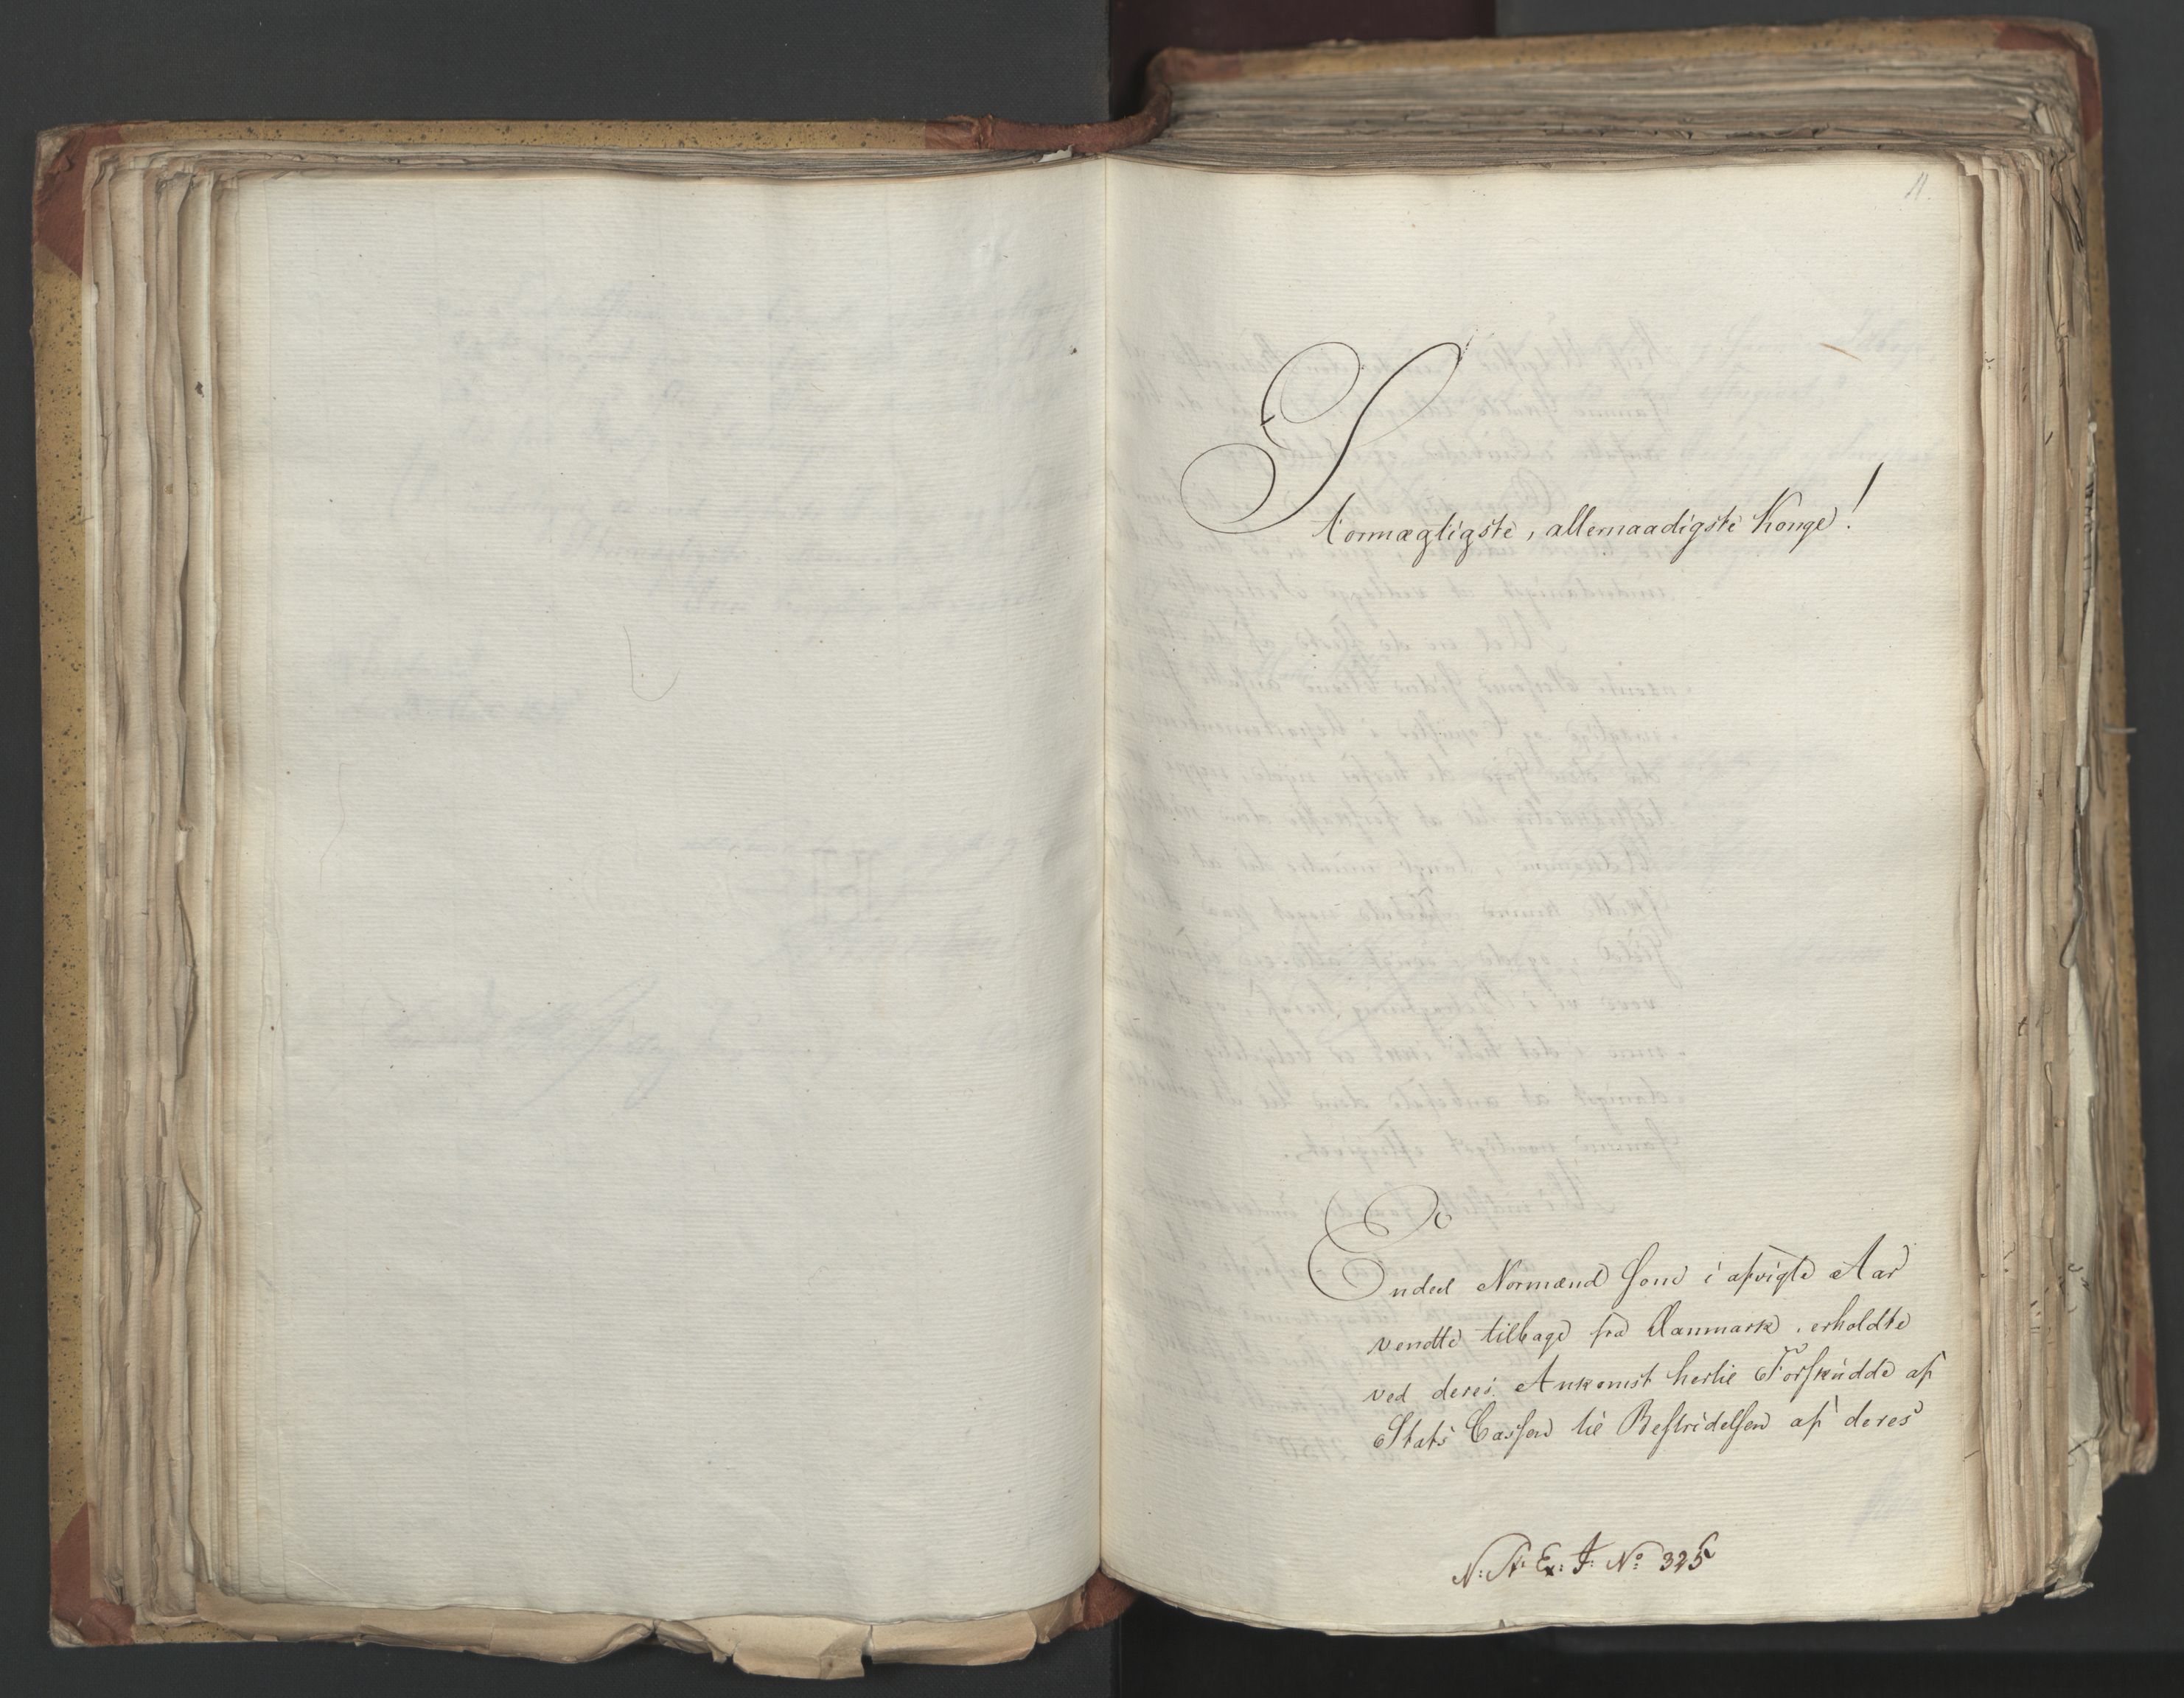 11.
Stormægtigste, allernaadigste Konge!
Endeel Normænd som i afvigte Aar
vendte tilbage fra Danmark, erholdte
ved deres Ankomst hertil Forskudde af
Stats Cassen til Bestridelsen af deres
N: St: Ex: J: No 325